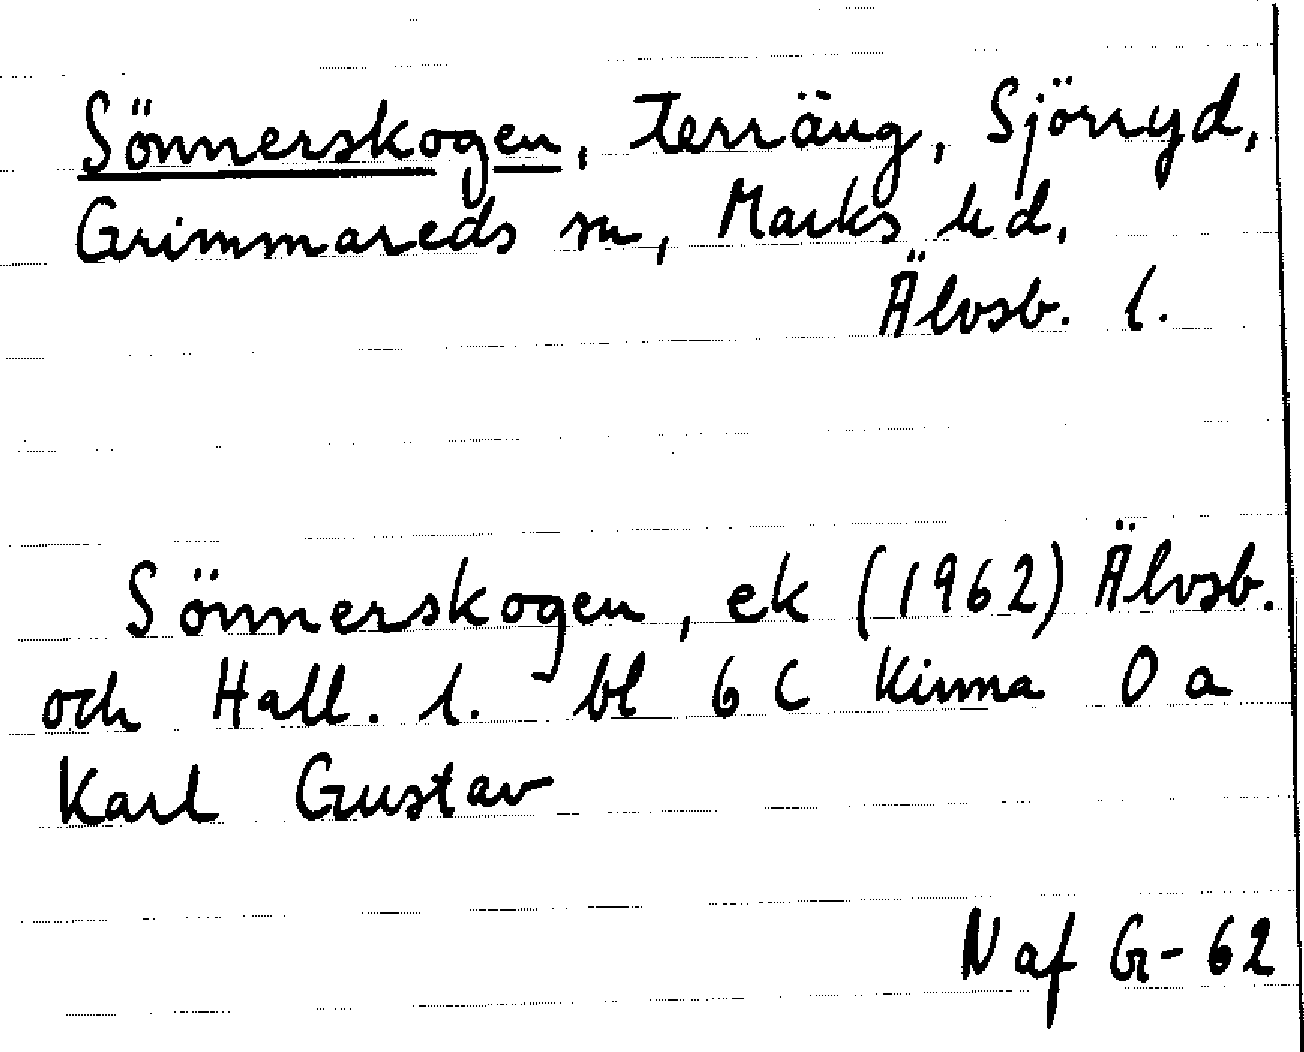 Sönnerskogen, terräng, Sjörryd,
Grimmareds sn, Marks hd,
Älvsb. l.
Sönnerskogen, ek (1962) Älvsb.
och Hall. l. bl 6 C Kinna 0 a
Karl Gustav
N af G-62